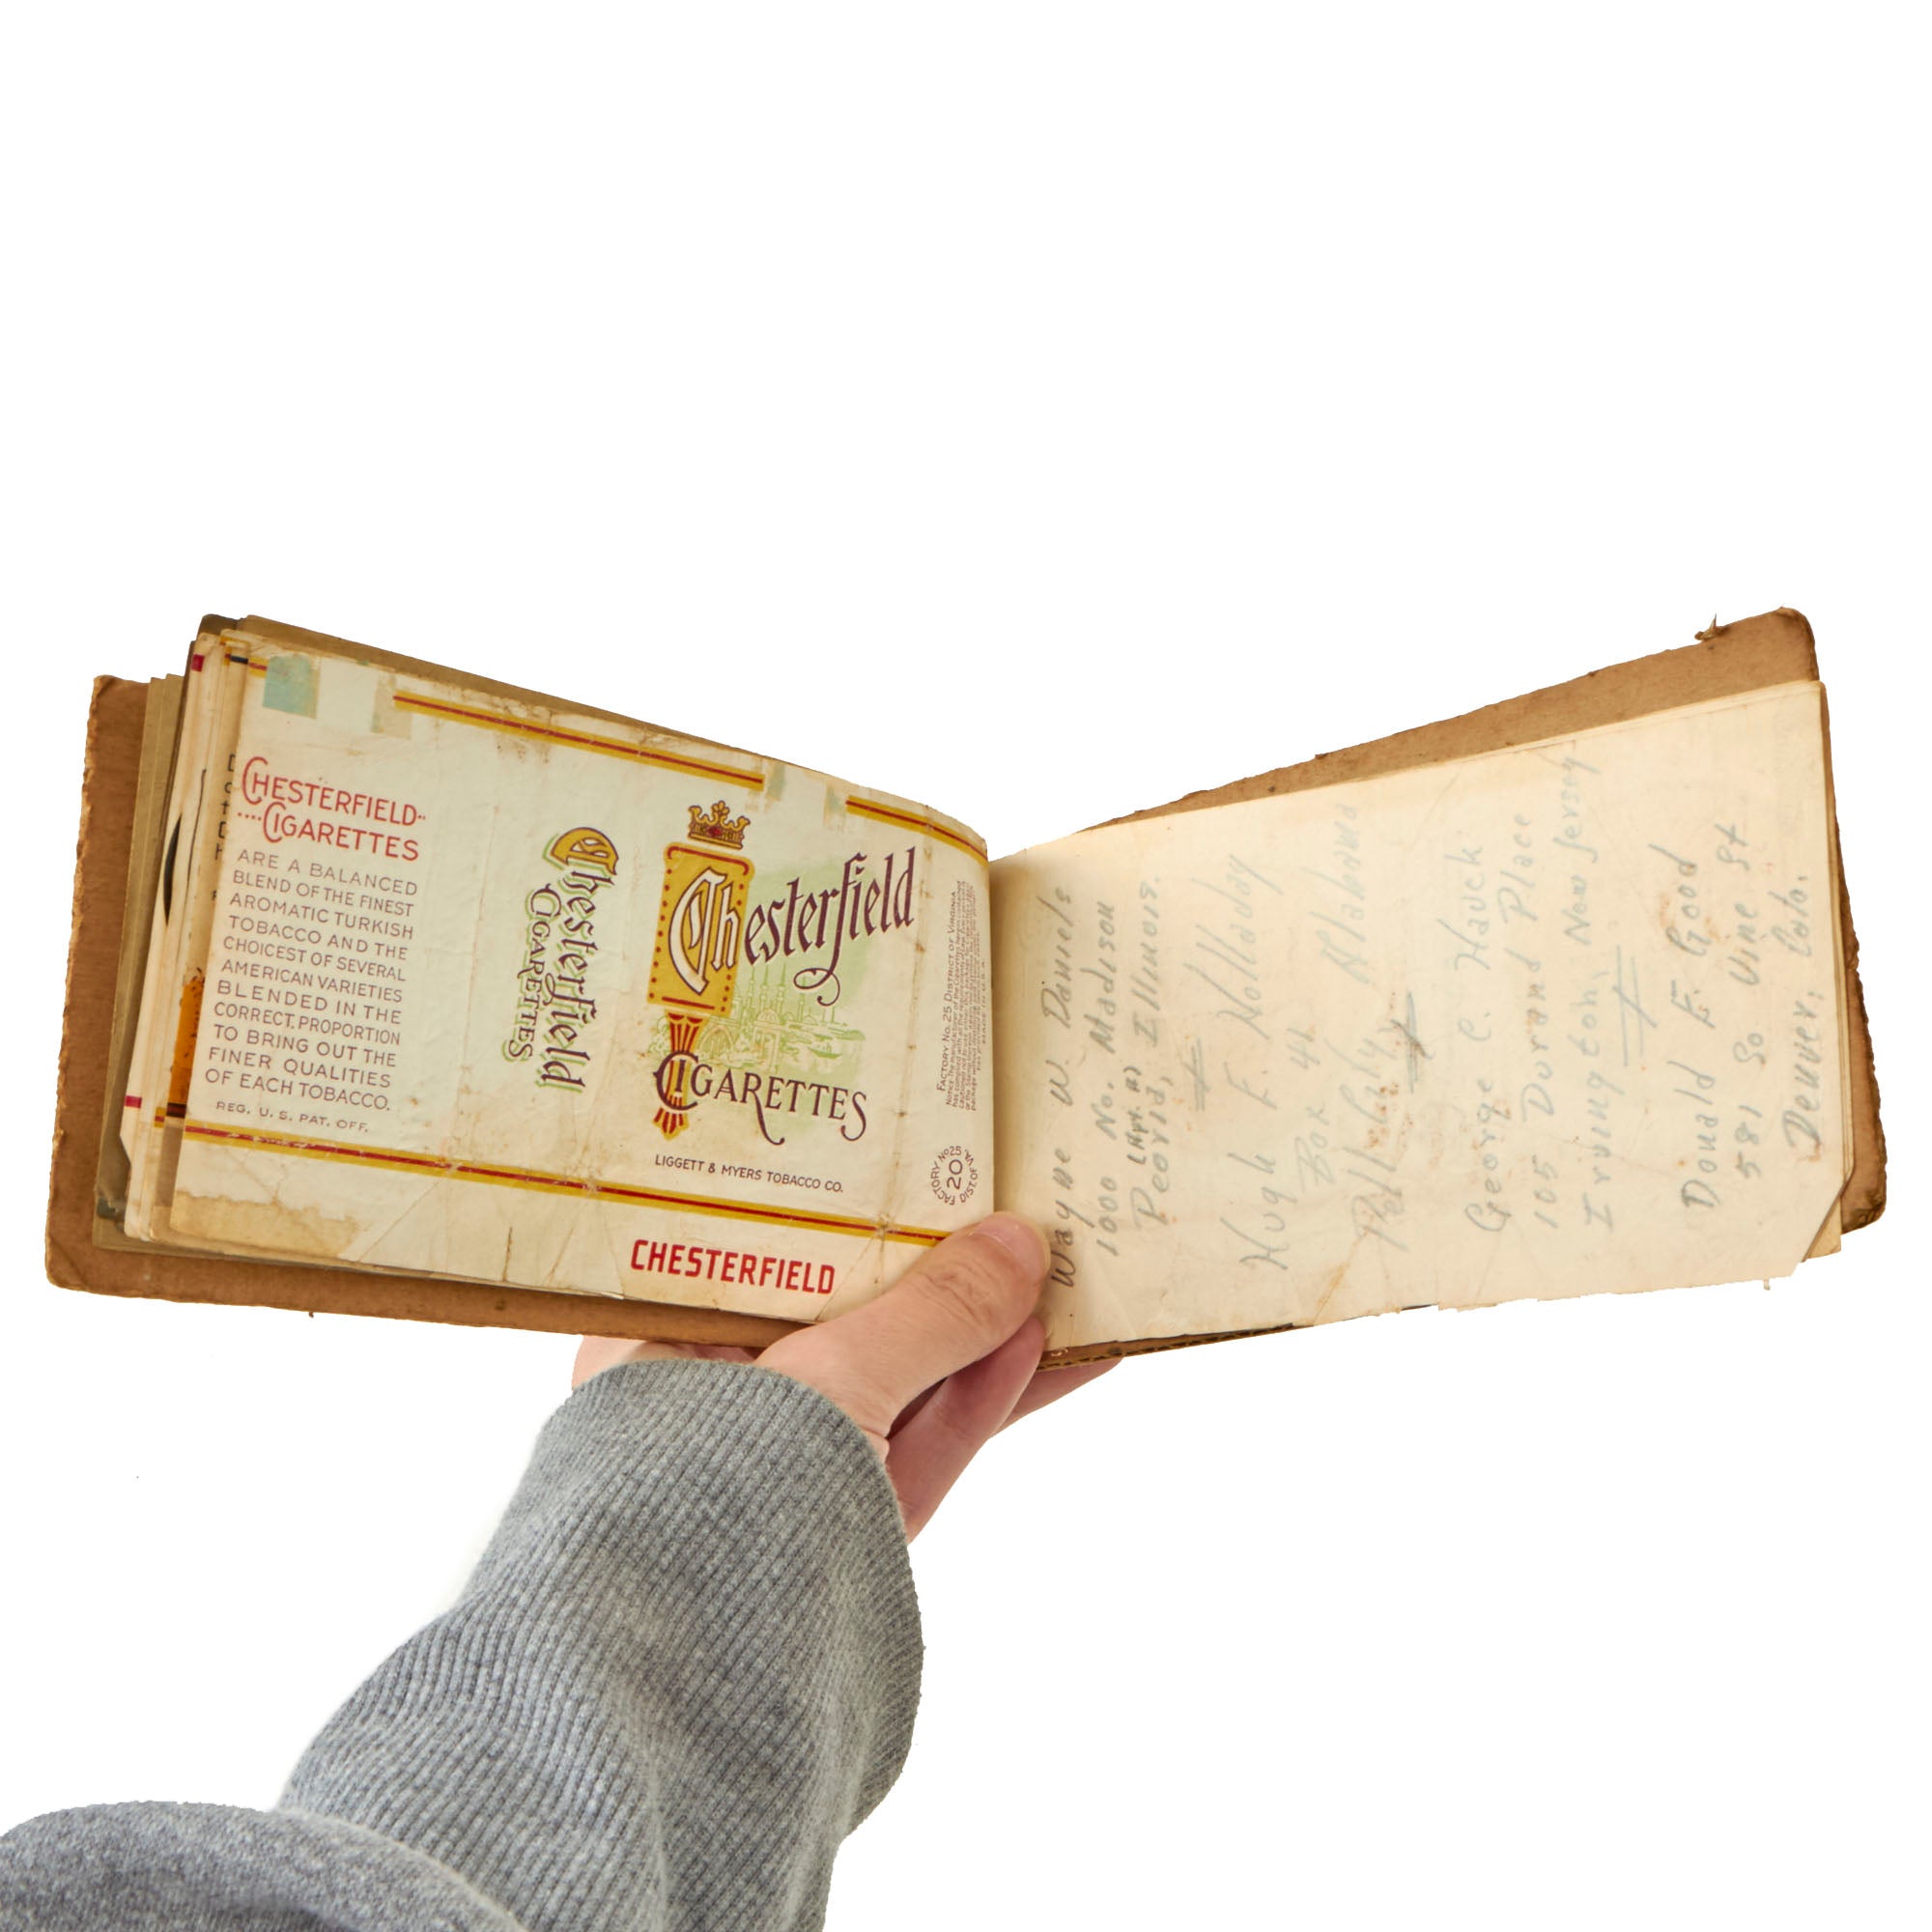 CHESTERFIELD
CIGARETTES
ARE A BALANCED
BLEND OF THE FINEST
AROMATIC TURKISH
TOBACCO AND THE
CHOICEST OF SEVERAL
AMERICAN VARIETIES
BLENDED IN THE
CORRECT PROPORTION
TO BRING OUT THE
FINER QUALITIES
OF EACH TOBACCO.
REG. U. S. PAT. OFF.
Chesterfield
CIGARETTES
Chesterfield
CIGARETTES
LIGGETT & MYERS TOBACCO CO.
FACTORY No. 25 DISTRICT OF VIRGINIA
FACTORY No 25 DIST. OF VA.
20
CHESTERFIELD
Wayne W. Daniels
1000 No. Madison
Peoria, Illinois.
Hugh F. Holladay
Box 41
Pell City Alabama
George C. Hauck
105 Durand Place
Irvington, New Jersey
Donald E. Good
581 So Vine St
Denver, Colo.